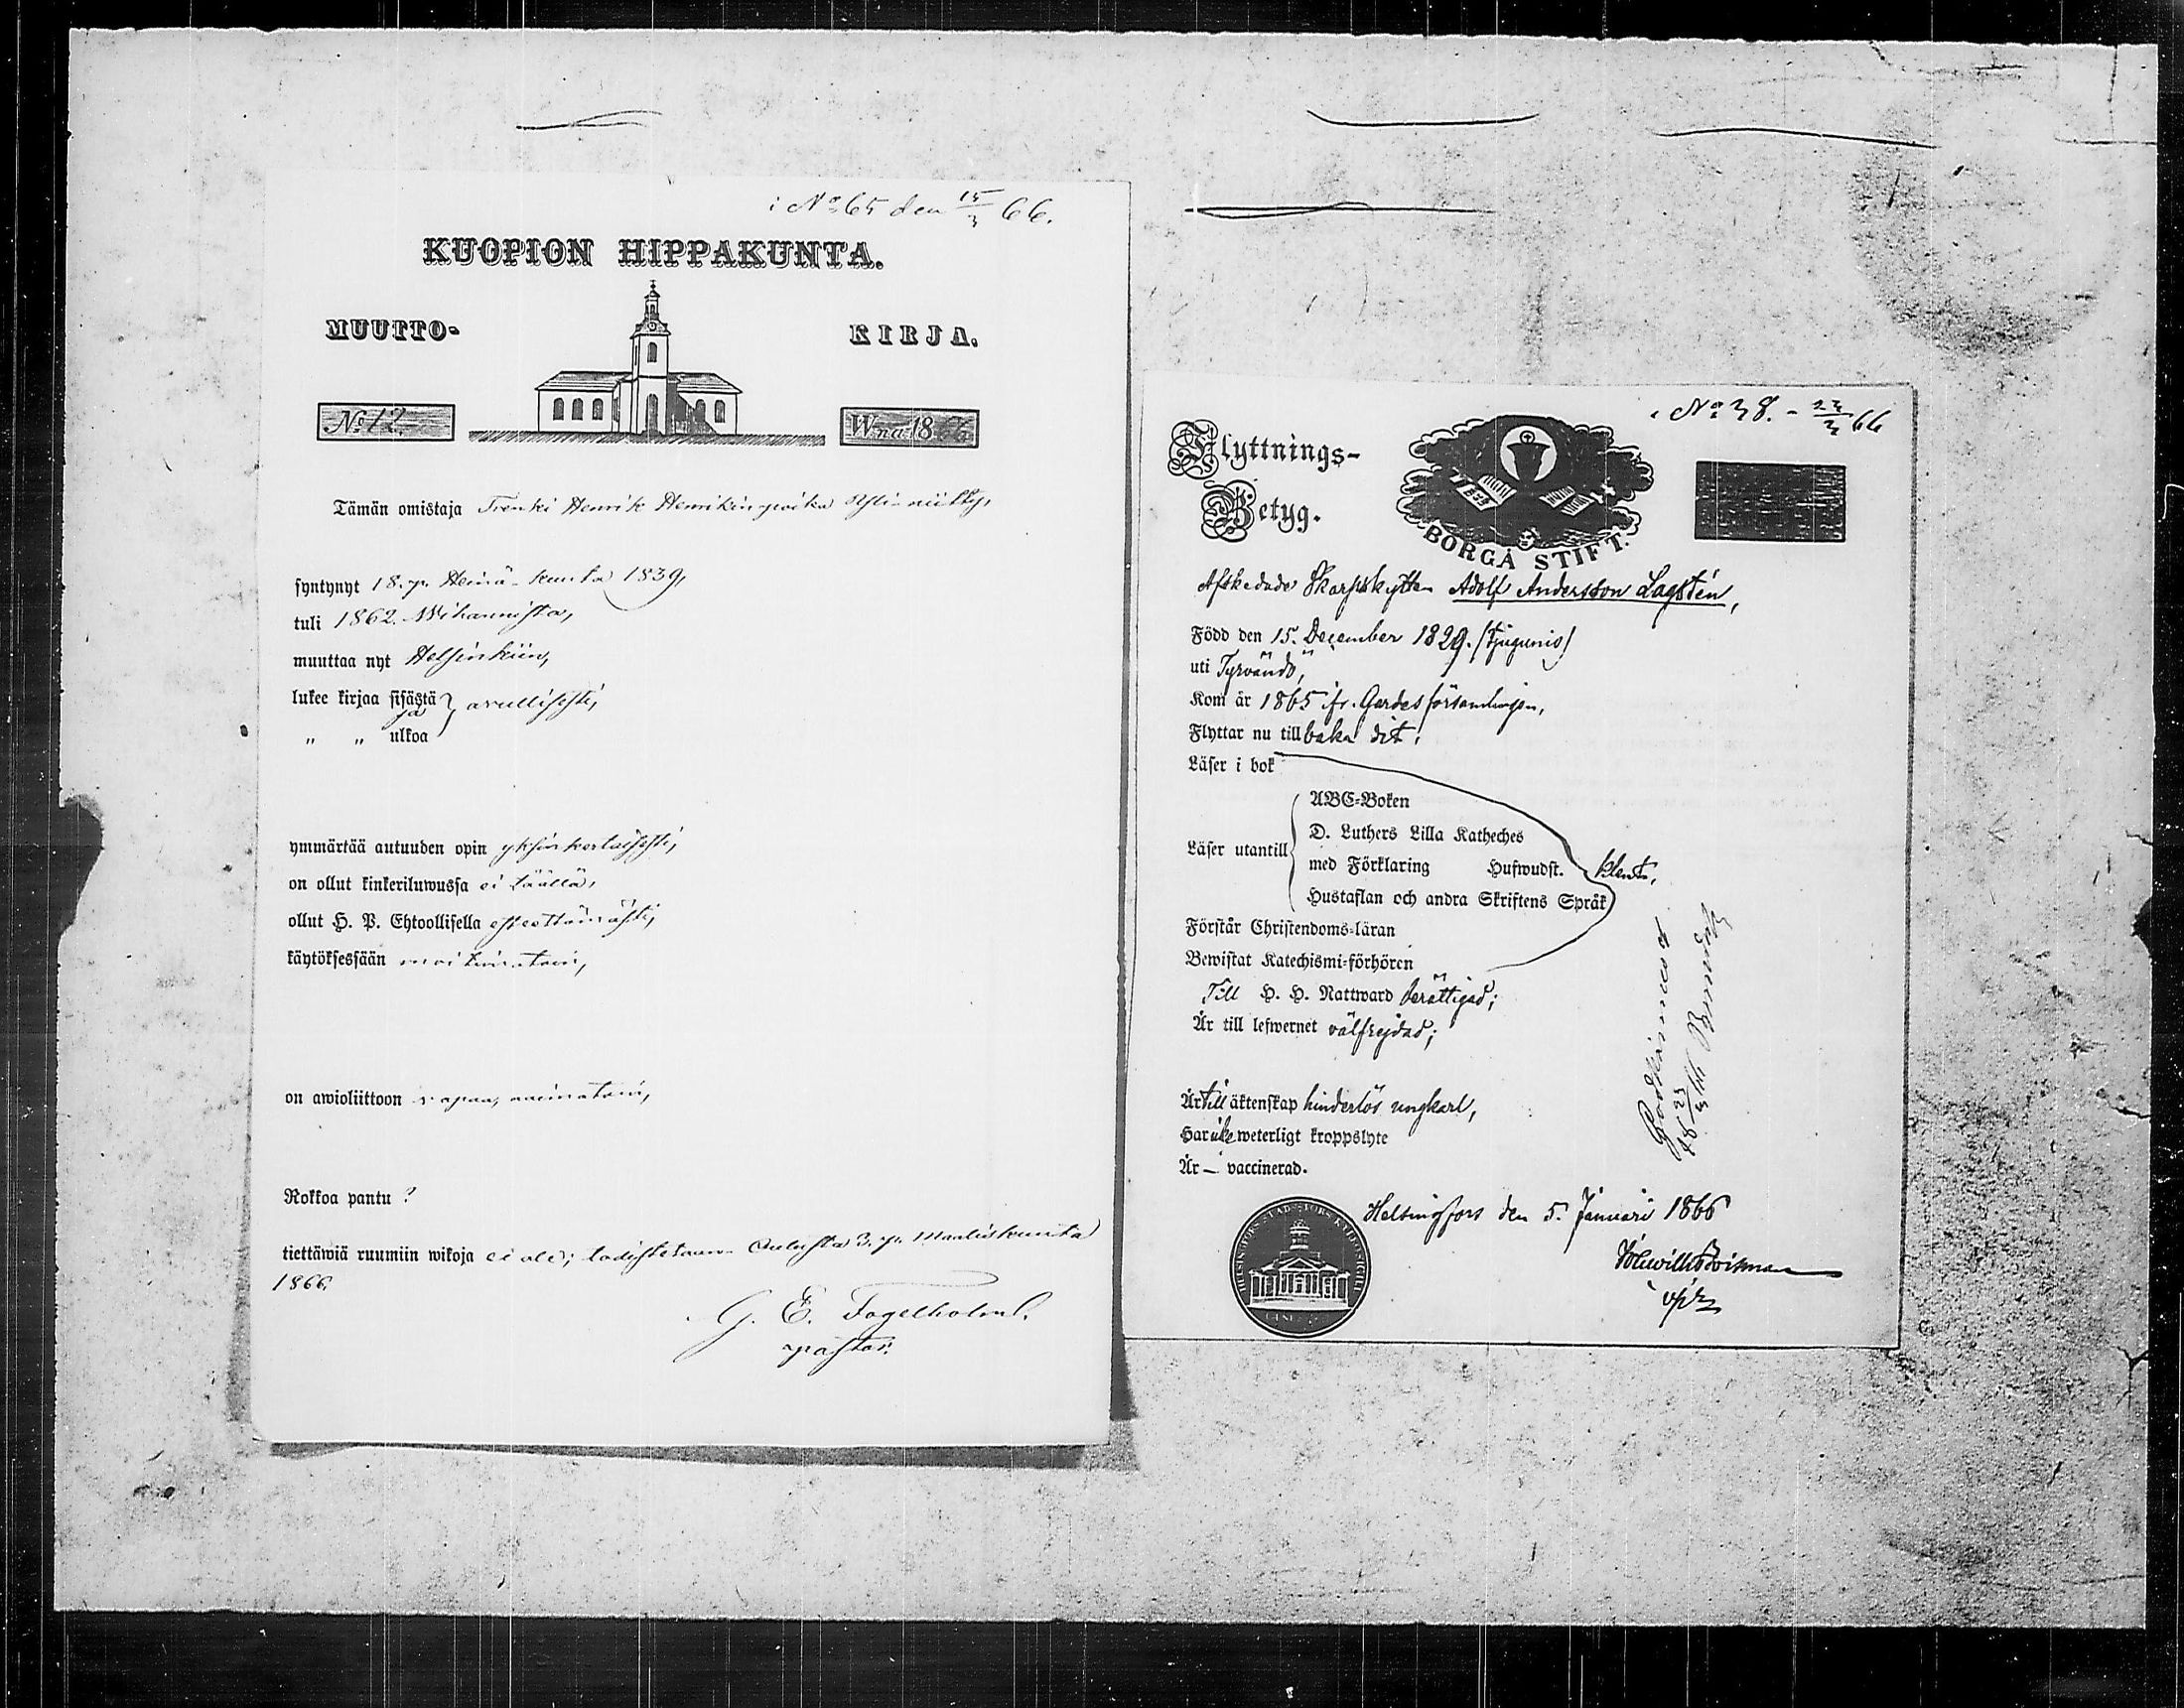 i No 65 den 15/3 66.
KUOPION HIPPAKUNTA.
MUUTTO- KIRJA.
No 12. Wna 1866
Tämän omistaja Trenki Henrik Henrikin poika Ylimiitty,
syntynyt 18. p. Heinä-kuuta 1839,
tuli 1862. Wihannista,
muuttaa nyt Helsinkiin,
lukee kirjaa sisästä } avullisesti,
ja
" " ulkoa
ymmärtää autuuden opin yksinkertaisesti,
on ollut kinkeriluwussa ei täällä,
ollut H. P. Ehtoollisella esteettömästi,
käytöksessään moitimatoin,
on awioliittoon vapaa, naimatoin,
Rokkoa pantu ?
tiettäwiä ruumiin wikoja ei ole; todistetaan Oulusta 3. p. Maaliskuuta
1866.
G. E. Fogelholm.
pastor.
i No 38. - 23/3 66
Flyttnings-
Betyg.
BORGÅ STIFT.
Afskedade Skarpskytten Adolf Andersson Lagstén,
Född den 15. December 1829. (tjugunio)
uti Tyrvändö,
Kom år 1865 fr. Gardesförsamlingen,
Flyttar nu till baka dit;
Läser i bok
ABC-Boken
D. Luthers Lilla Katheches
Läser utantill
med Förklaring Hufwudst. klent,
Hustaflan och andra Skriftens Språk
Förstår Christendoms-läran
Bewistat Katechismi-förhören
Till H. H. Nattward berättigad;
Är till lefwernet välfrejdad;
Är till äktenskap hinderlös ungkarl,
Har icke weterligt kroppslyte
Är — vaccinerad.
Helsingfors den 5. Januari 1866
v. p.
Godkännes